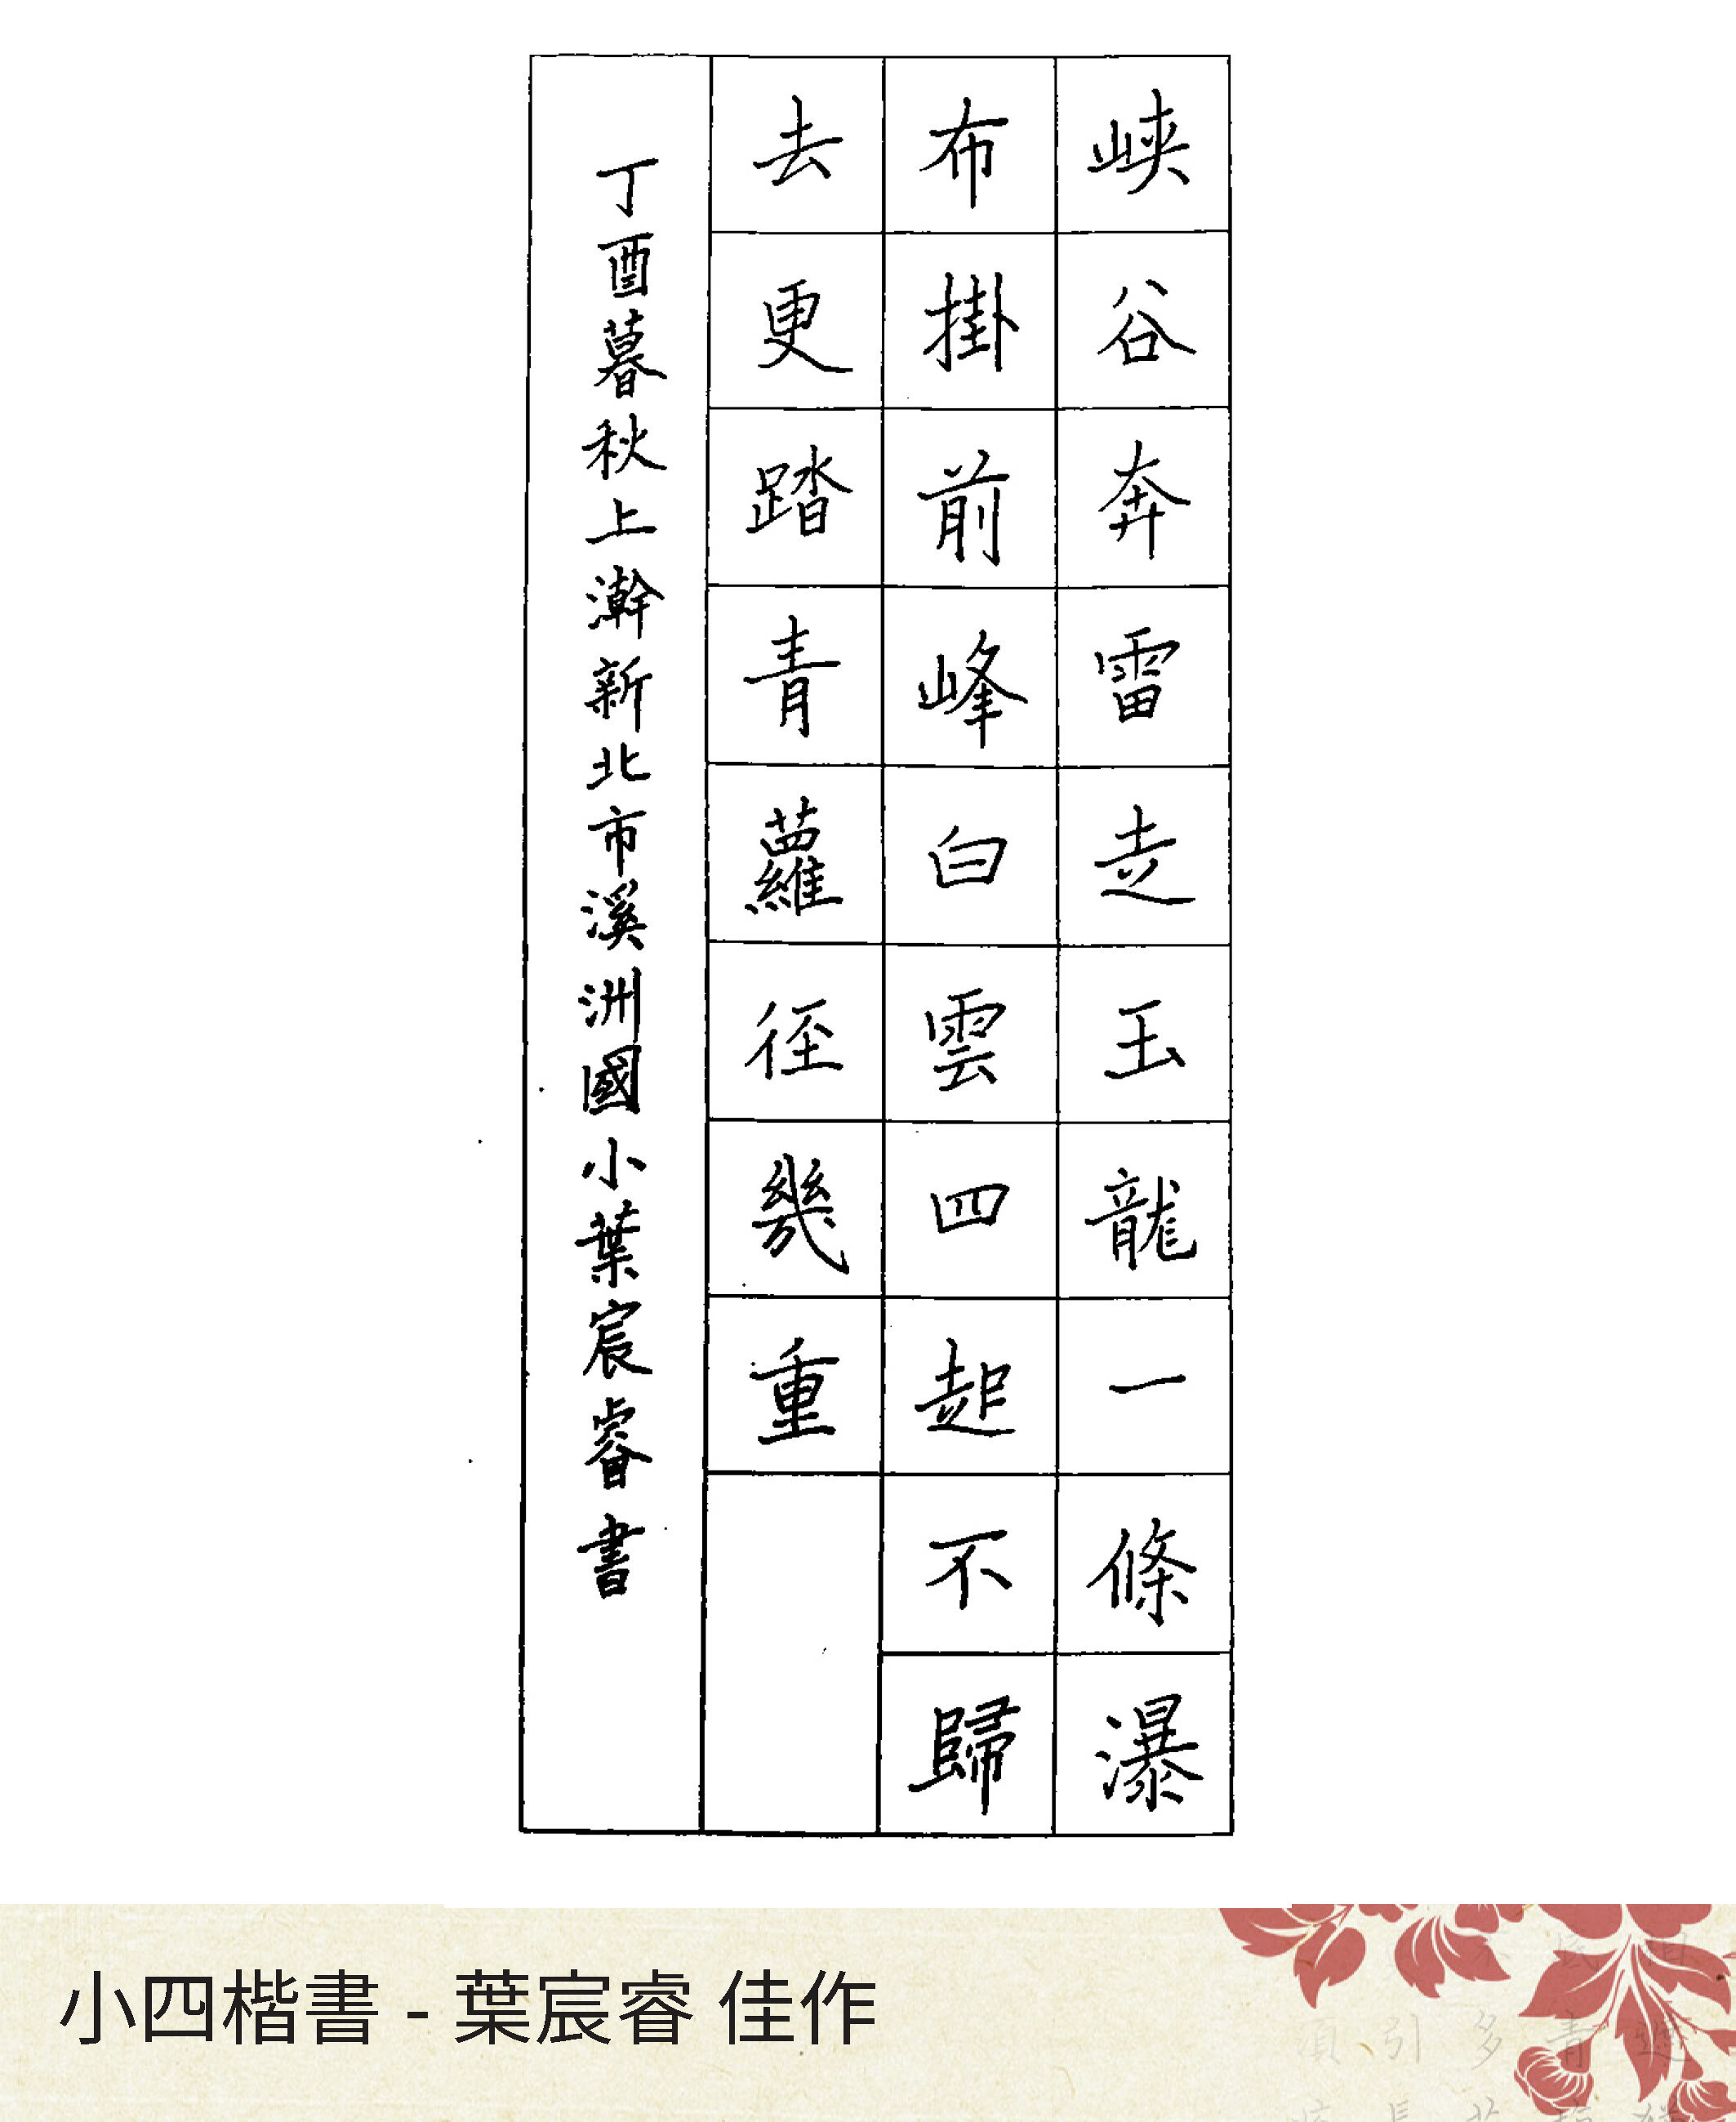 峽谷奔雷走玉龍一條瀑
布掛前峰白雲四起不歸
去更踏青蘿徑幾重
丁酉暮秋上澣新北市溪洲國小葉宸睿書
小四楷書 - 葉宸睿 佳作